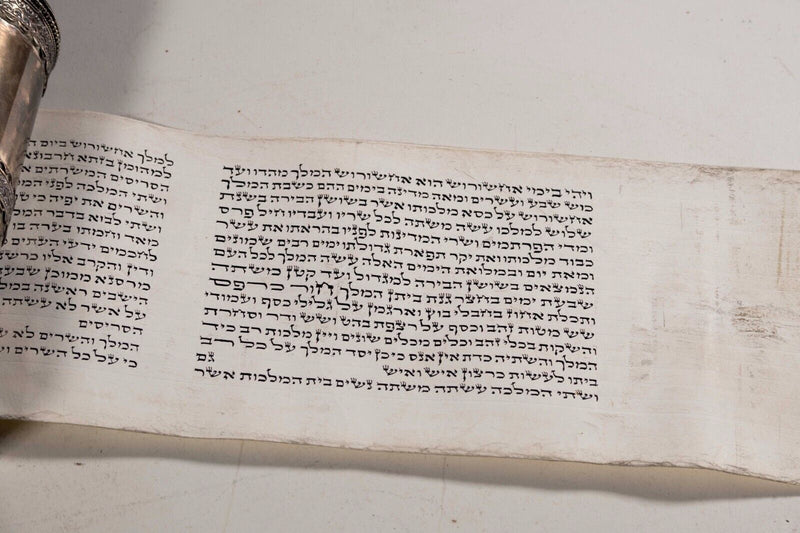 ויהי בימי אחשורוש הוא אחשורוש המלך מהדו ועד
כוש שבע ועשרים ומאה מדינה בימים ההם כשבת המלך
אחשורוש על כסא מלכותו אשר בשושן הבירה בשנת
שלוש למלכו עשה משתה לכל שריו ועבדיו חיל פרס
ומדי הפרתמים ושרי המדינות לפניו בהראתו את עשר
כבוד מלכותו ואת יקר תפארת גדולתו ימים רבים שמונים
ומאת יום ובמלואת הימים האלה עשה המלך לכל העם
הנמצאים בשושן הבירה למגדול ועד קטן משתה
שבעת ימים בחצר גנת ביתן המלך חור כרפס
ותכלת אחוז בחבלי בוץ וארגמן על גלילי כסף ועמודי
שש מטות זהב וכסף על רצפת בהט ושש ודר וסחרת
והשקות בכלי זהב וכלים מכלים שונים ויין מלכות רב כיד
המלך והשתיה כדת אין אנס כי כן יסד המלך על כל רב
ביתו לעשות כרצון איש ואיש גם
ושתי המלכה עשתה משתה נשים בית המלכות אשר
למלך אחשורוש ביום
למהומן בזתא חרבונא
הסריסים המשרתים
ושתי המלכה לפני
והשרים את יפיה כי
ושתי לבוא בדבר
מאד וחמתו בערה בו
לחכמים ידעי העתים
ודין והקרב אליו
מרסנא ממוכן
הישבים ראשנה
על אשר לא עשתה
הסריסים
המלך והשרים לא
כי על כל השרים